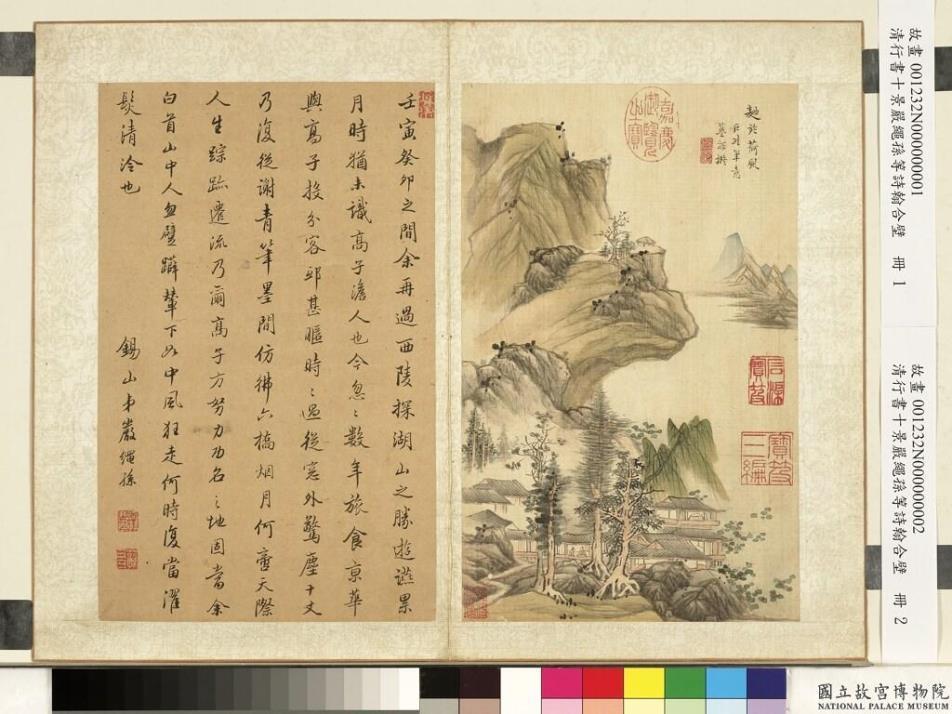 壬寅癸卯之間余再過西陵探湖山之勝遊讌累
月時猶未識高子澹人也今忽〻數年旅食京華
與高子投分客邸甚暱時〻過從窓外驚塵十丈
乃復從謝青筆墨間仿彿六橋烟月何啻天際
人生踪跡遷流乃爾高子方努力功名之地固當余
白首山中人忽躄躃輦下如中風狂走何時復當濯
髮清泠也
錫山弟嚴繩孫
麯院荷風
嘉慶御覽之寶
寶笈三編
故畫 001232N000000001
清行書十景嚴繩孫等詩翰合璧 冊 1
故畫 001232N000000002
清行書十景嚴繩孫等詩翰合璧 冊 2
國立故宮博物院
NATIONAL PALACE MUSEUM